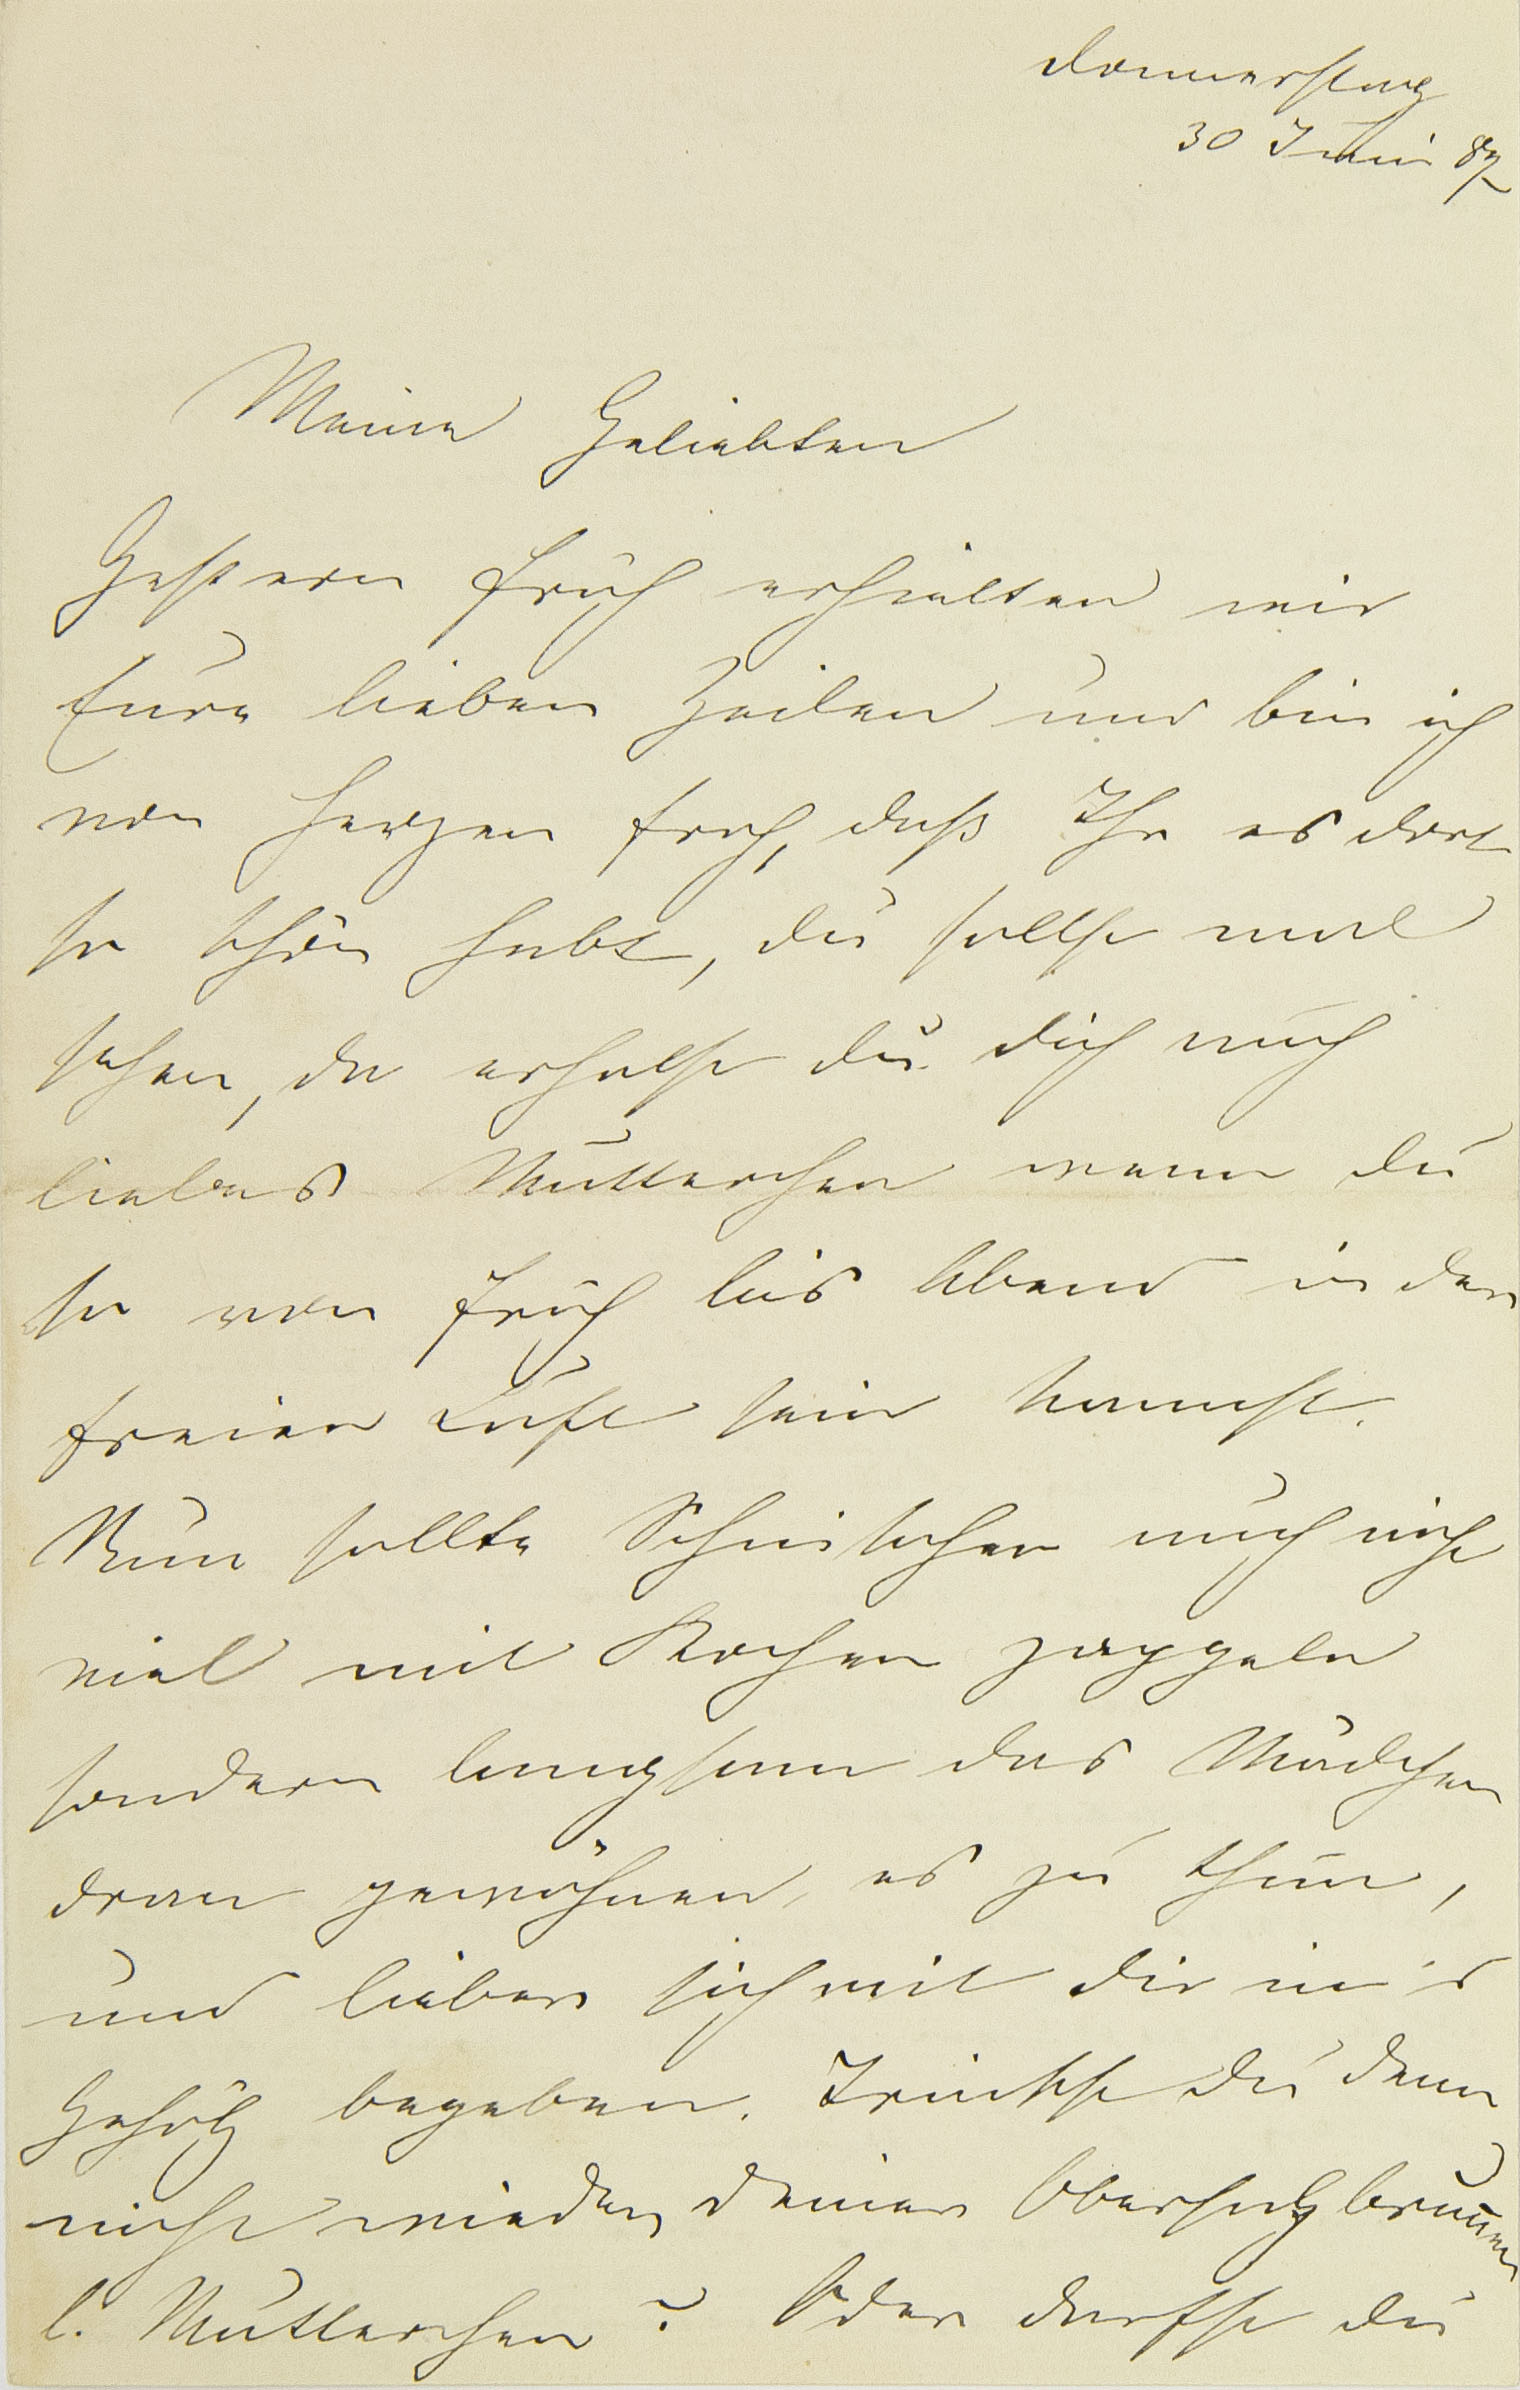 Donnerstag
30 Juni 87
Meine Geliebten
Gestern früh erhielten wir
Eure lieben Zeilen und bin ich
von Herzen froh, daß Ihr es dort
so schön habt, du sollst mal
sehen, da erholst du dich auch
liebes Mutterchen wenn du
so von früh bis Abend in der
freien Luft sein kannst.
Nun sollte auch nicht
viel mit Kochen zappeln
sondern langsam das Mädchen
dran gewöhnen, es zu thun,
und lieber sich mit dir in's
Gehölz begeben. Trinkst du denn
nicht wieder deinen Obersalzbrunnen
l. Mutterchen? Oder darfst du